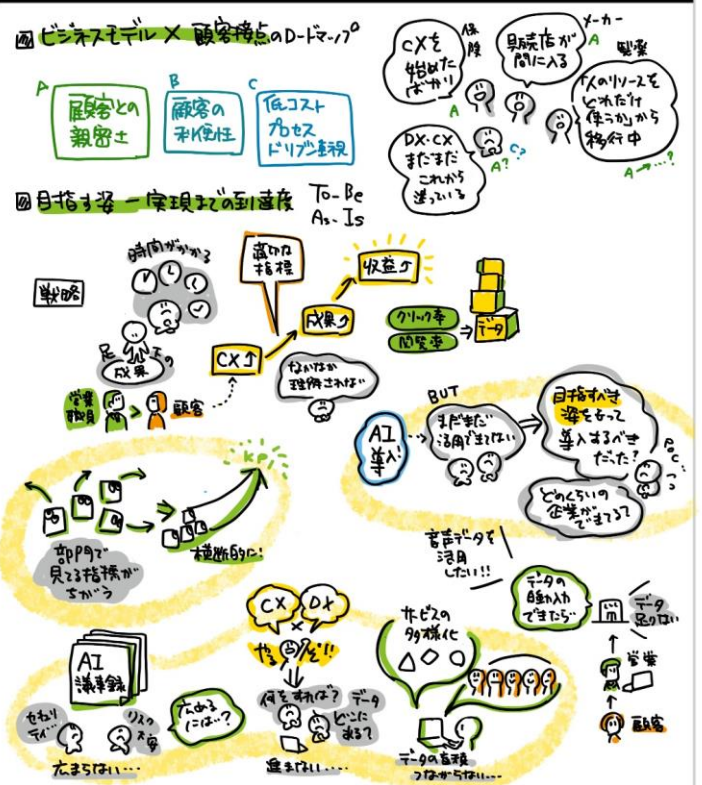 ビジネスモデル × 顧客接点のロードマップ
A
顧客との
親密さ
B
顧客の
利便性
C
低コスト
プロセス
ドリブン重視
CXを
始めた
ばかり
保険
A
販売店が
間に入る
メーカー
A
製薬
「人のリソースを
どれだけ
使うか」から
移行中
A→…?
DX・CX
まだまだ
これから
迷っている
A?
C?
目指す姿 ー 実現までの到達度
To-Be
As-Is
戦略
時間がかかる
足下の
成果
営業
職員
>
顧客
CX↑
適切な
指標
成果↑
収益↑
なかなか
理解されない
クリック率
閲覧率
データ
AI
導入!
BUT
まだまだ
活用できてない
目指すべき
姿をもって
導入するべき
だった?
POC…
どのくらいの
企業が
できてる?
KPI
部門で
見てる指標が
ちがう
横断的に!
音声データを
活用
したい!!
データの
自動入力
できたら
データ
足りない
営業
顧客
AI
議事録
セキュリ
ティ
リスク
不安
広まらない…
広める
には…?
CX
×
DX
やるぞ!!
何をすれば?
データ
どこに
ある?
進まない…
サービスの
多様化
データの蓄積
つながらない…